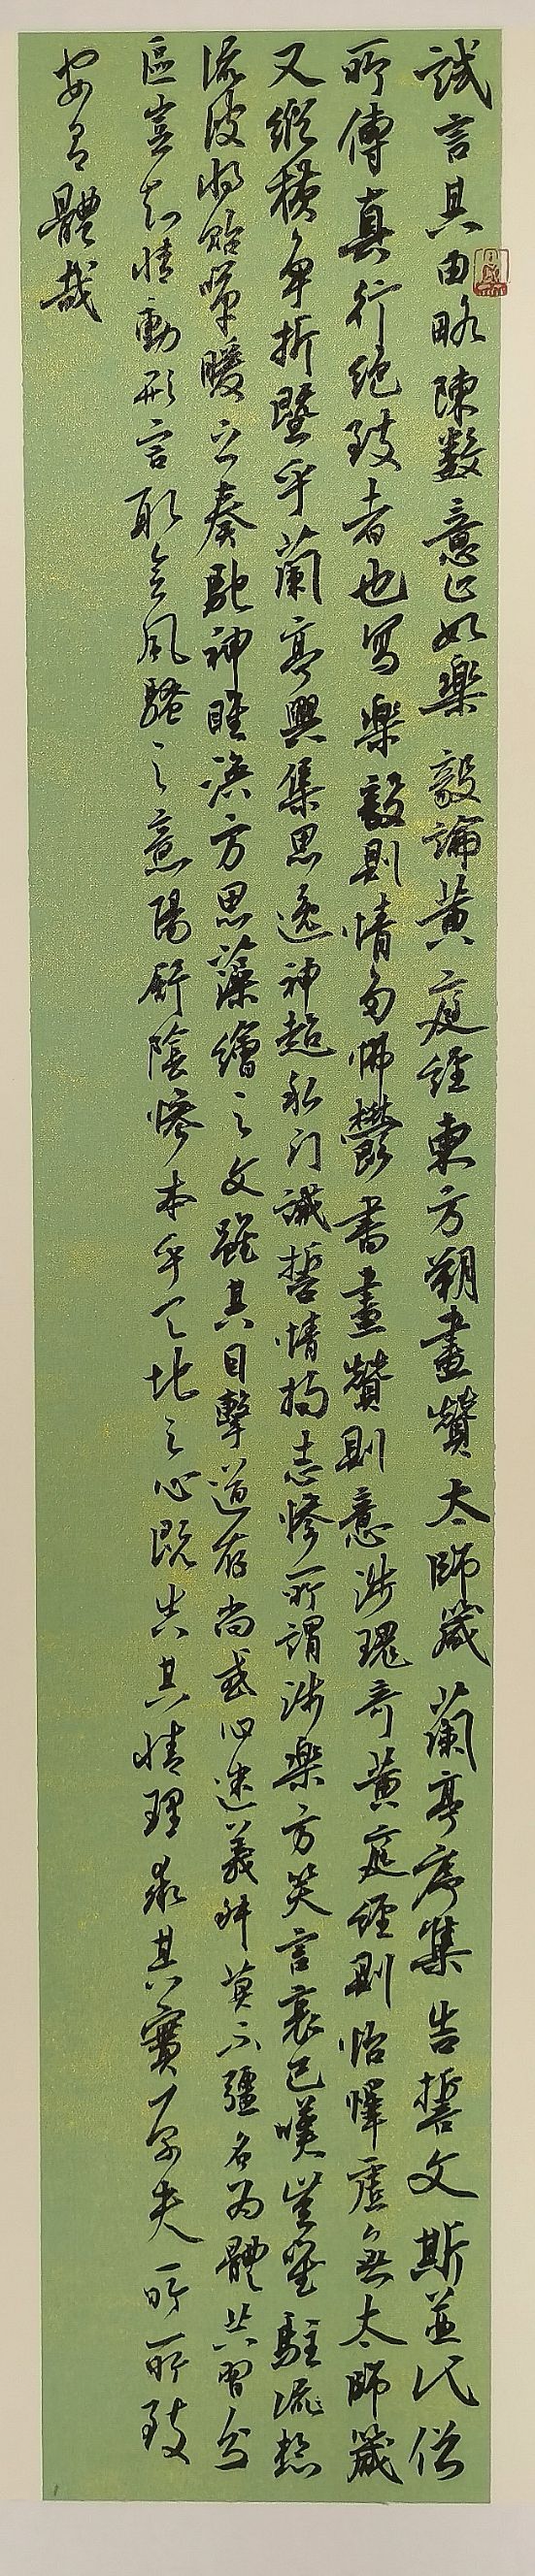 試言其由略陳數意止如樂毅論黃庭經東方朔畫贊太師箴蘭亭序集告誓文斯並代俗
所傳真行絕致者也寫樂毅則情多怫鬱書畫贊則意涉瑰奇黃庭經則怡懌虛無太師箴
又縱橫爭折暨乎蘭亭興集思逸神超私門誡誓情拘志慘所謂涉樂方笑言哀已嘆豈惟駐流想
流波將貽嘽暖之奏馳神睢渙方思藻繪之文雖其目擊道存尚或心迷義舛莫不疆名為體共習分
區豈知情動形言取會風騷之意陽舒陰慘本乎天地之心既失其情理乖其實原夫所所致
安有體哉